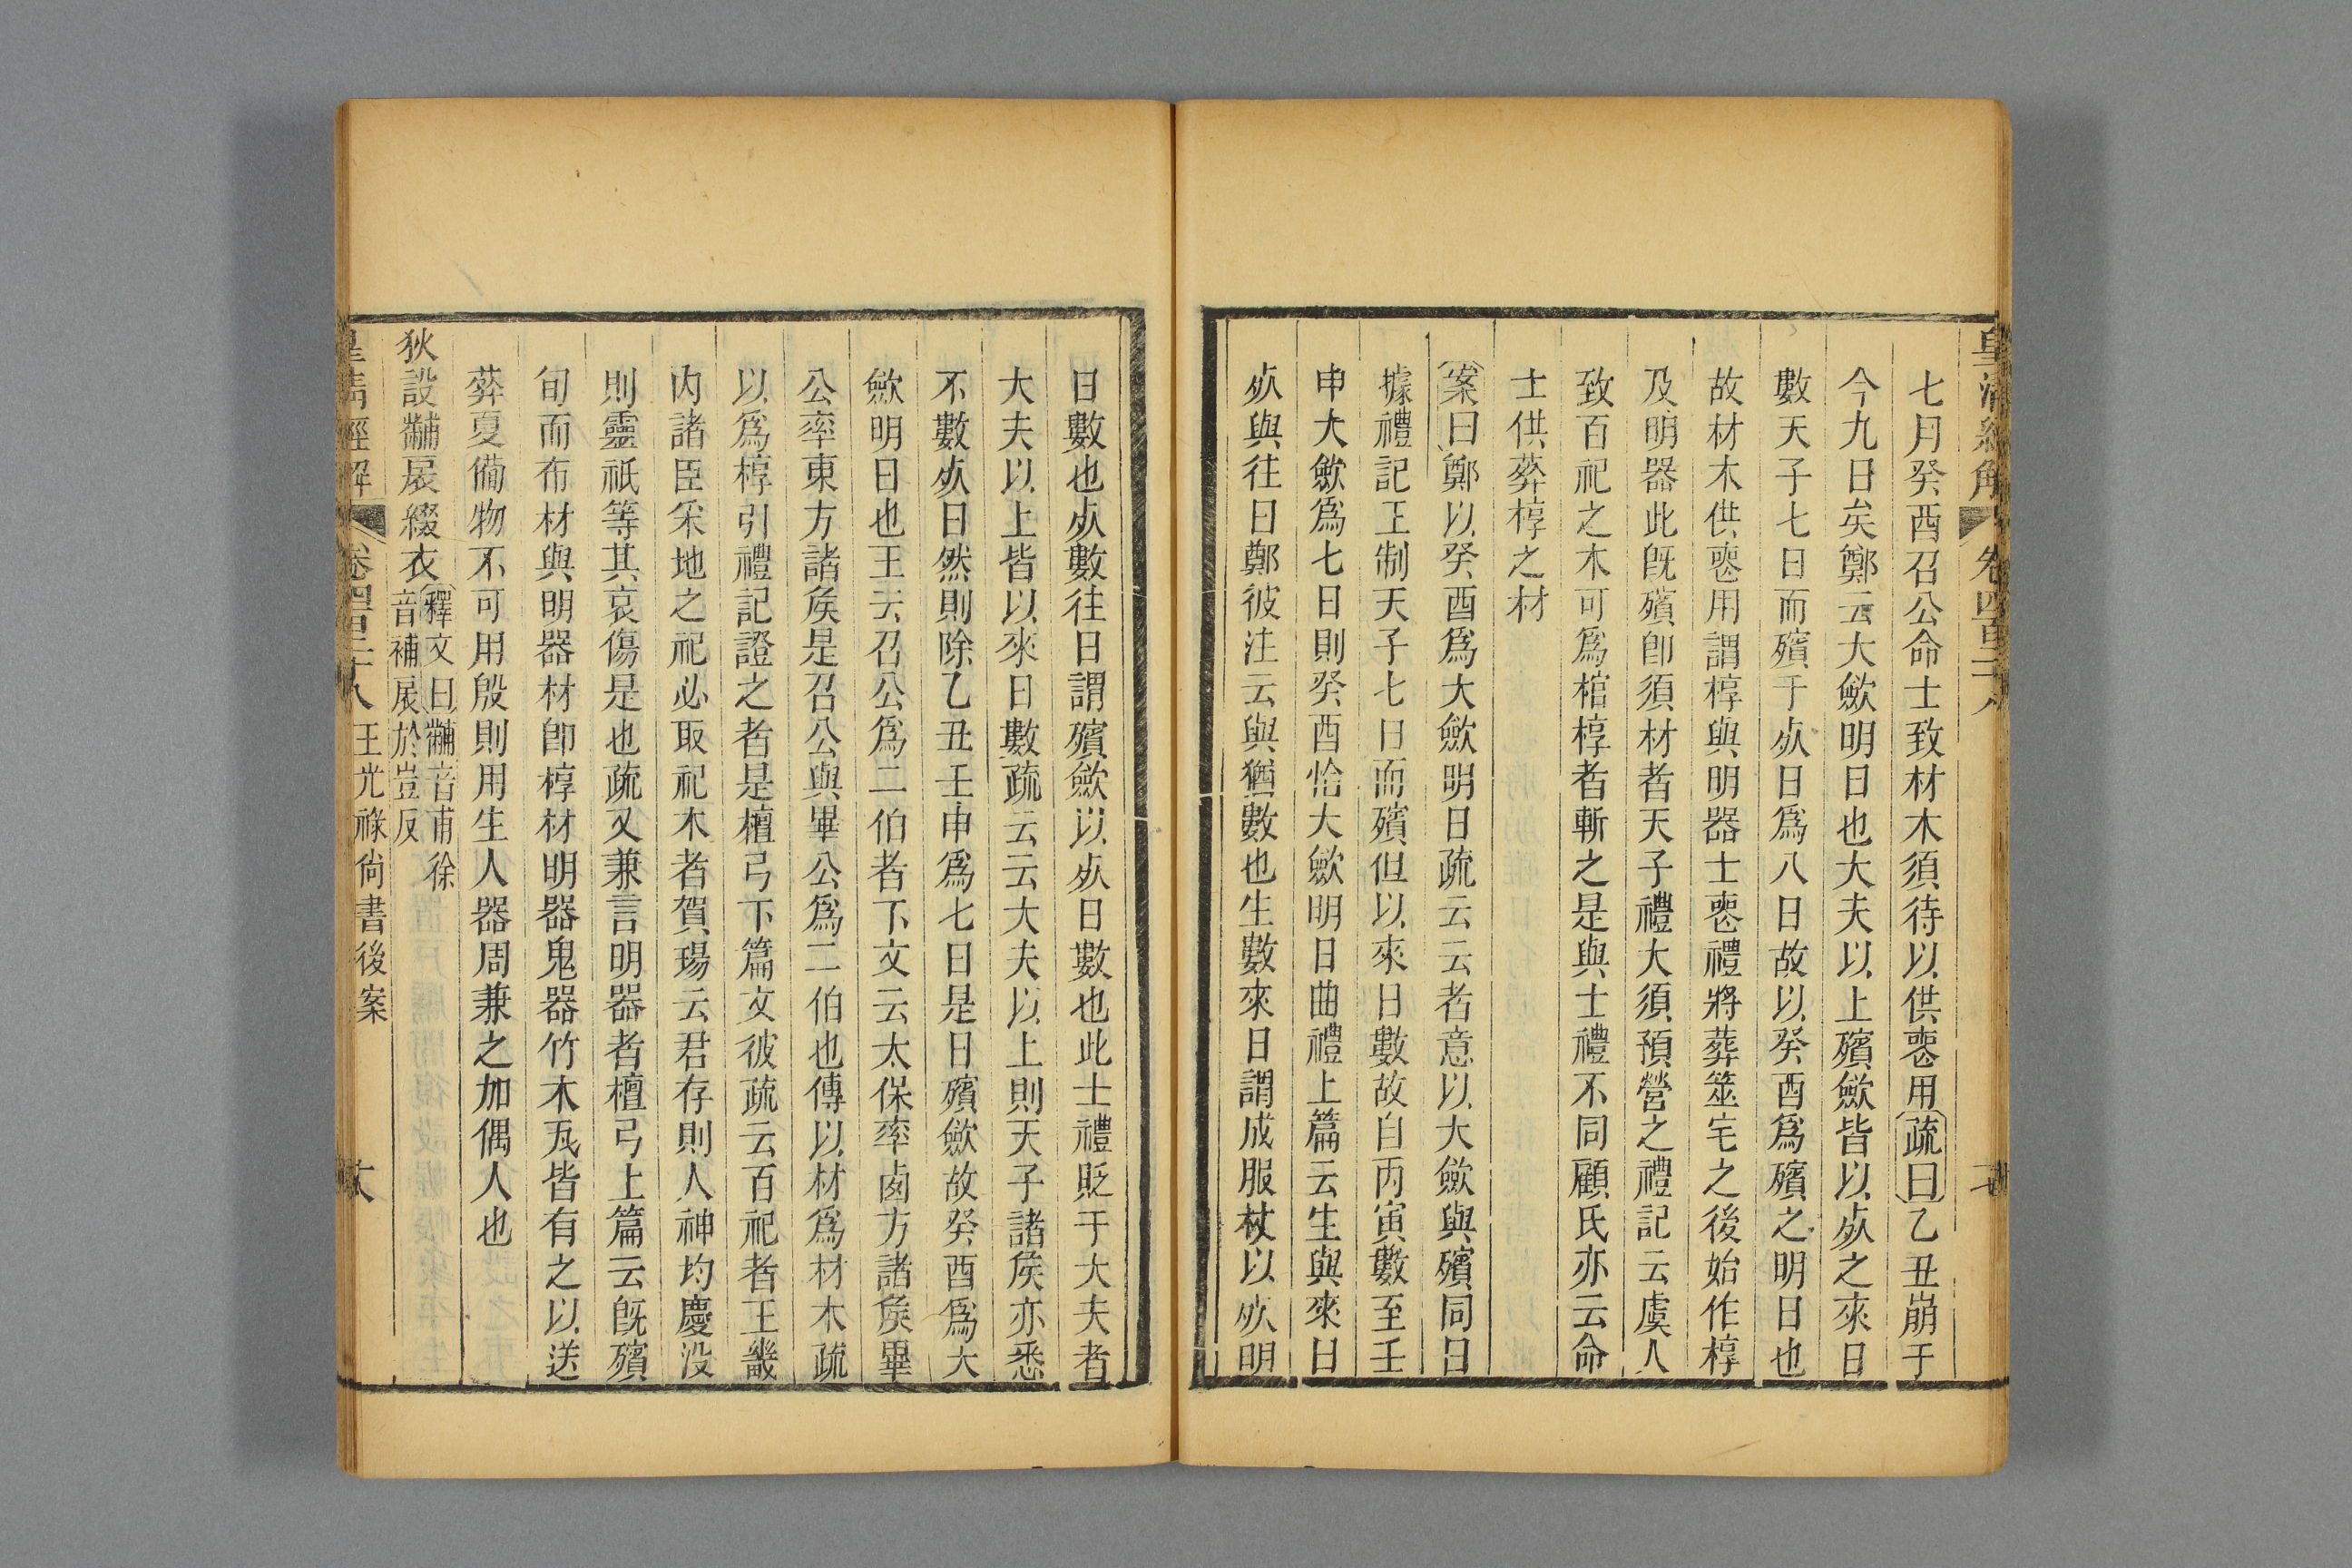 皇清經解
卷四百二十八
七月癸酉召公命士致材木須待以供喪用疏曰乙丑崩于
今九日矣鄭云大斂明日也大夫以上殯斂皆以𣦸之來日
數天子七日而殯于𣦸日爲八日故以癸酉爲殯之明日也
故材木供喪用謂椁與明器士喪禮將葬筮宅之後始作椁
及明器此旣殯卽須材者天子禮大須預營之禮記云虞人
致百祀之木可爲棺椁者斬之是與士禮不同顧氏亦云命
士供葬椁之材
案曰鄭以癸酉爲大斂明日疏云云者意以大斂與殯同日
據禮記王制天子七日而殯但以來日數故自丙寅數至壬
申大斂爲七日則癸酉恰大斂明日曲禮上篇云生與來日
𣦸與往日鄭彼注云與猶數也生數來日謂成服杖以𣦸明
日數也𣦸數往日謂殯斂以𣦸日數也此士禮貶于大夫者
大夫以上皆以來日數疏云云大夫以上則天子諸矦亦悉
不數𣦸日然則除乙丑壬申爲七日是日殯斂故癸酉爲大
斂明日也王云召公爲二伯者下文云太保率卤方諸矦畢
公率東方諸矦是召公與畢公爲二伯也傳以材爲材木疏
以爲椁引禮記證之者是檀弓下篇文彼疏云百祀者王畿
內諸臣采地之祀必取祀木者賀瑒云君存則人神均慶沒
則靈祇等其哀傷是也疏又兼言明器者檀弓上篇云旣殯
旬而布材與明器材卽椁材明器鬼器竹木瓦皆有之以送
葬夏僃物不可用殷則用生人器周兼之加偶人也
狄設黼扆綴衣釋文曰黼音甫徐
音補扆於豈反
皇清經解
卷四百二十八
王光祿尚書後案